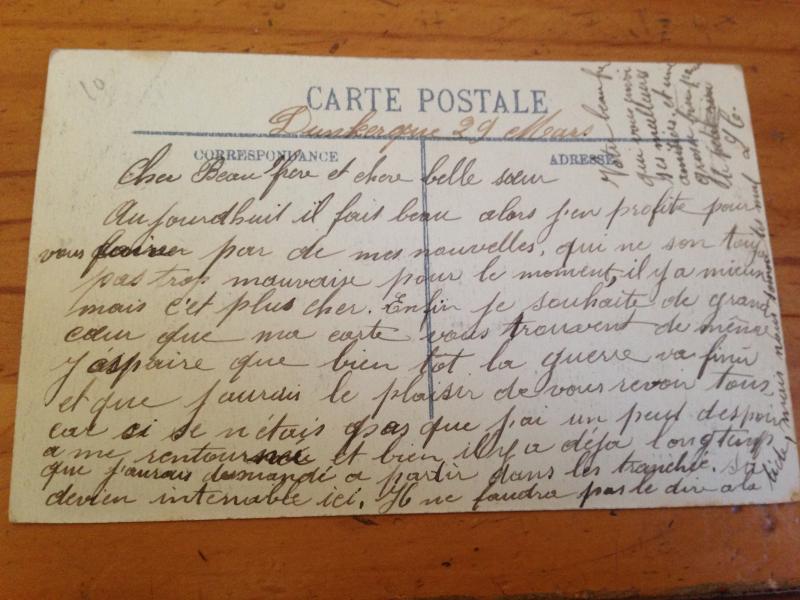 10
CARTE POSTALE
Dunkerque 29 Mars
CORRESPONDANCE
ADRESSE
Cher Beau frère et chere belle sœur
Aujourdhuit il fait beau alors j'en profite pour
vous par de mes nouvelles, qui ne son touj
pas trop mauvaise pour le moment, il y a mieux
mais c'et plus cher. Enfin je souhaite de grand
cœur que ma carte vous trouvent de même
J'aspaire que bien tot la guerre va finir
et que j'aurais le plaisir de vous revoir tous
car si se n'étais pas que j'ai un peut despoir
a me et bien il y a déja longtemp
que j'aurais demandé a partir dans les tranché. sa
devien intenable ici. Il ne faudra pas le dire a la
mais nous
Votre beau fr
qui vous envoi
ses meilleurs
et une
amicale